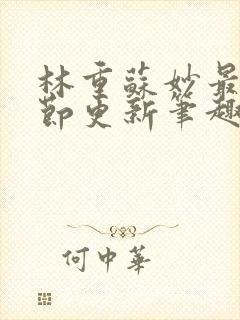 林重蘇妙最
節更新筆趣
何中華